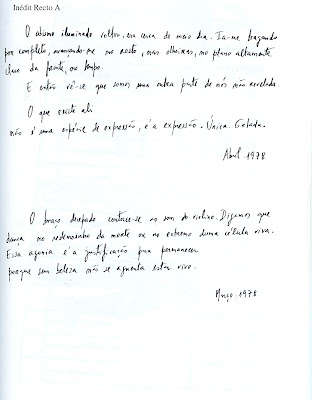 Inédit Recto A
O abismo iluminado voltou, era cerca de meio dia. Ia-me tragando
por completo, avançando-me no rosto, nas olheiras, no plano altamente
claro da fronte, no tempo.
E então vê-se que somos uma outra parte de nós não revelada.
O que existe ali
não é uma espécie de expressão, é a expressão. Única. Gelada.
Abril. 1978
O braço decepado contorce-se ao som do violino. Digamos que
dança no redemoinho da morte ou no extremo duma célula viva.
Essa agonia é a justificação para permanecer
porque sem beleza não se aguenta estar vivo.
Março. 1978